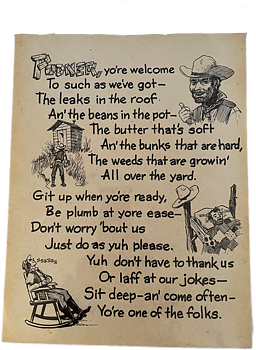 PODNER, you're welcome
To such as we've got—
The leaks in the roof
An' the beans in the pot—
The butter that's soft
An' the bunks that are hard,
The weeds that are growin'
All over the yard.
Git up when yo're ready,
Be plumb at yore ease—
Don't worry 'bout us
Just do as yuh please.
Yuh don't have to thank us
Or laff at our jokes—
Sit deep—an' come often—
Yo're one of the folks.